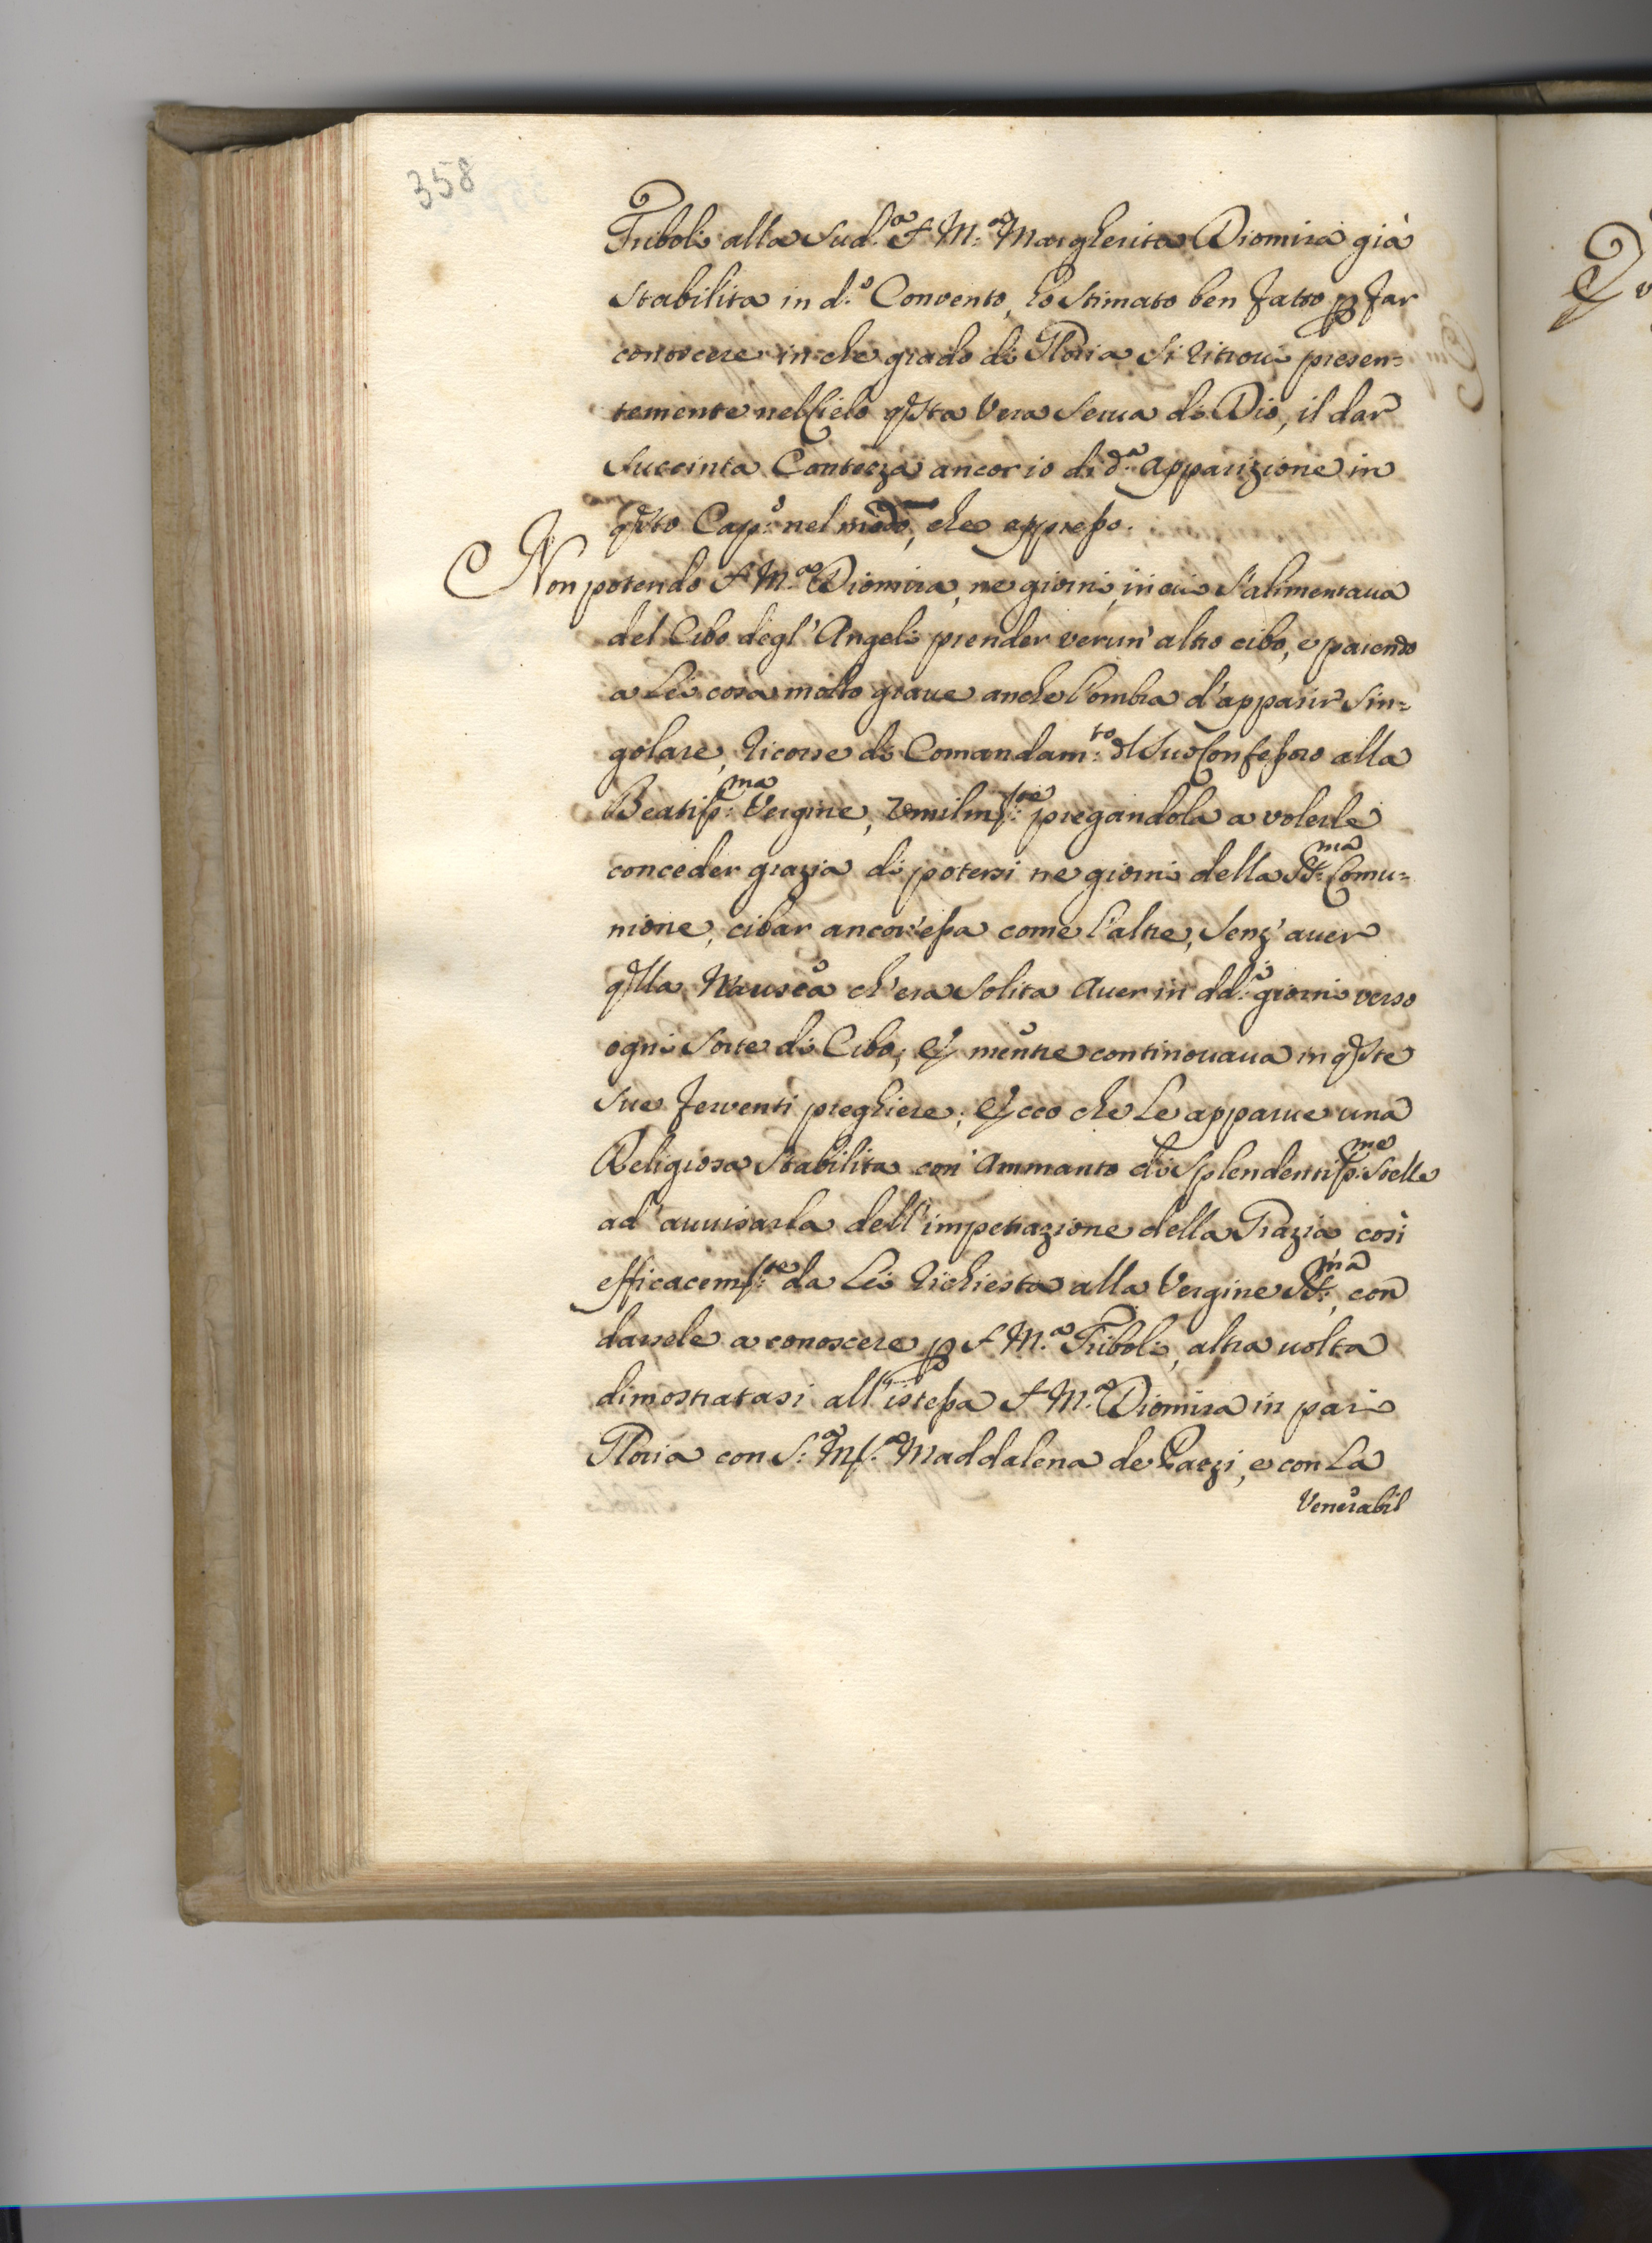 358
Triboli alla Sud.ª S. M.ª Margherita Diomira già
Stabilita in d.º Convento, ho Stimato ben fatto p far
conoscere in che grado di Gloria Si ritroui presen=
temente nel Cielo qsta Vera Serua di Dio, il dar
Succinta Contezza ancor io di d.ª Apparizione in
qsto Cap.º nel modo, che appresso.
Non potendo S. M.ª Diomira, ne giorni, in cui S'alimentaua
del Cibo degl'Angeli prender verun'altro cibo, e parendo
a Lei cosa molto graue anche l'ombra d'apparir Sin=
golare, ricorse di Comandam.to dl Suo Confessoro alla
Beatiss.ma Vergine, Vmilm.te pregandola a volerle
conceder grazia di potersi ne giorni della SS.ma Comu=
nione, cibar ancor'essa come l'altre, Senz'auer
qlla Nausea ch'era Solita Auer in dd.i giorni verso
ogni Sorte di Cibo; Ej mentre continouaua in qste
Sue ferventi preghiere; Ecco che Le apparue una
Religiosa Stabilita con Ammanto di Splendentiss.me Stelle
ad'auuisarla dell'impetrazione della Grazia così
efficacem.te da Lei richiesta alla Vergine SS.ma, con
darsele a conoscere p S. M.ª Triboli, altra uolta
dimostratasi all'istessa S. M.ª Diomira in pari
Gloria con S.ª M.ª Maddalena de Pazzi, e con La
Venerabil